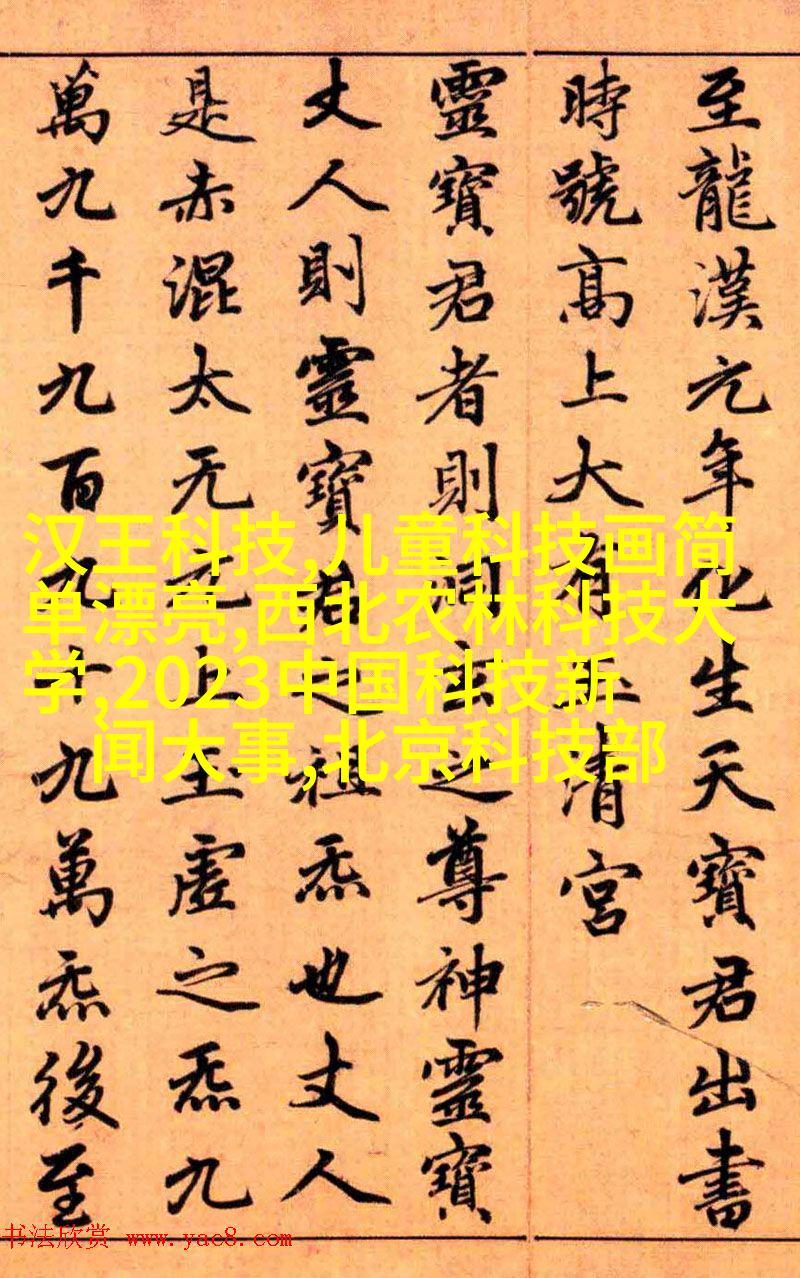 至龍漢元年化生天寶君出書
時號高上大有玉清宮
靈寶君者則洞玄之尊神靈寶
丈人則靈寶君之祖炁也丈人
是赤混太无元上玉虛之炁九
萬九千九百九十九萬炁後至
汉王科技,儿童科技画简
单漂亮,西北农林科技大
学,2023中国科技新
闻大事,北京科技部
书法欣赏 www.yac8.com